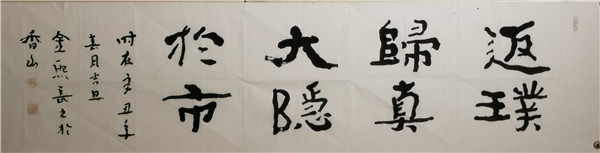 返璞
歸真
大隱
於市
时在辛丑年
月吉旦
金熙長书於
香山